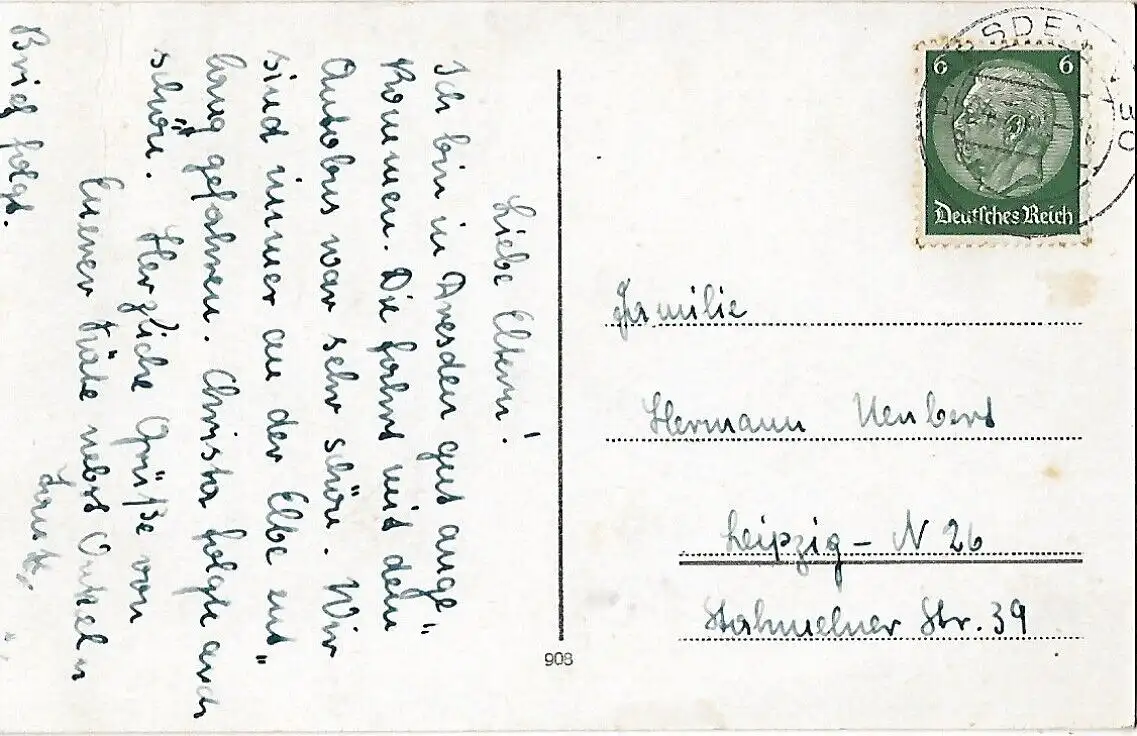 Liebe Eltern!
Ich bin in Dresden gut ange"
kommen. Die fahrt mit dem
Autobus war sehr schön. Wir
sind immer an der Elbe ent"
lang gefahren. Christa folgte auch
schön. Herzliche Grüße von
Eurer Käte nebst Onkel u
Brief folgt.
6 6
Deutsches Reich
30
Familie
Hermann Neubert
Leipzig – N 26
Stahmelner Str. 39
908